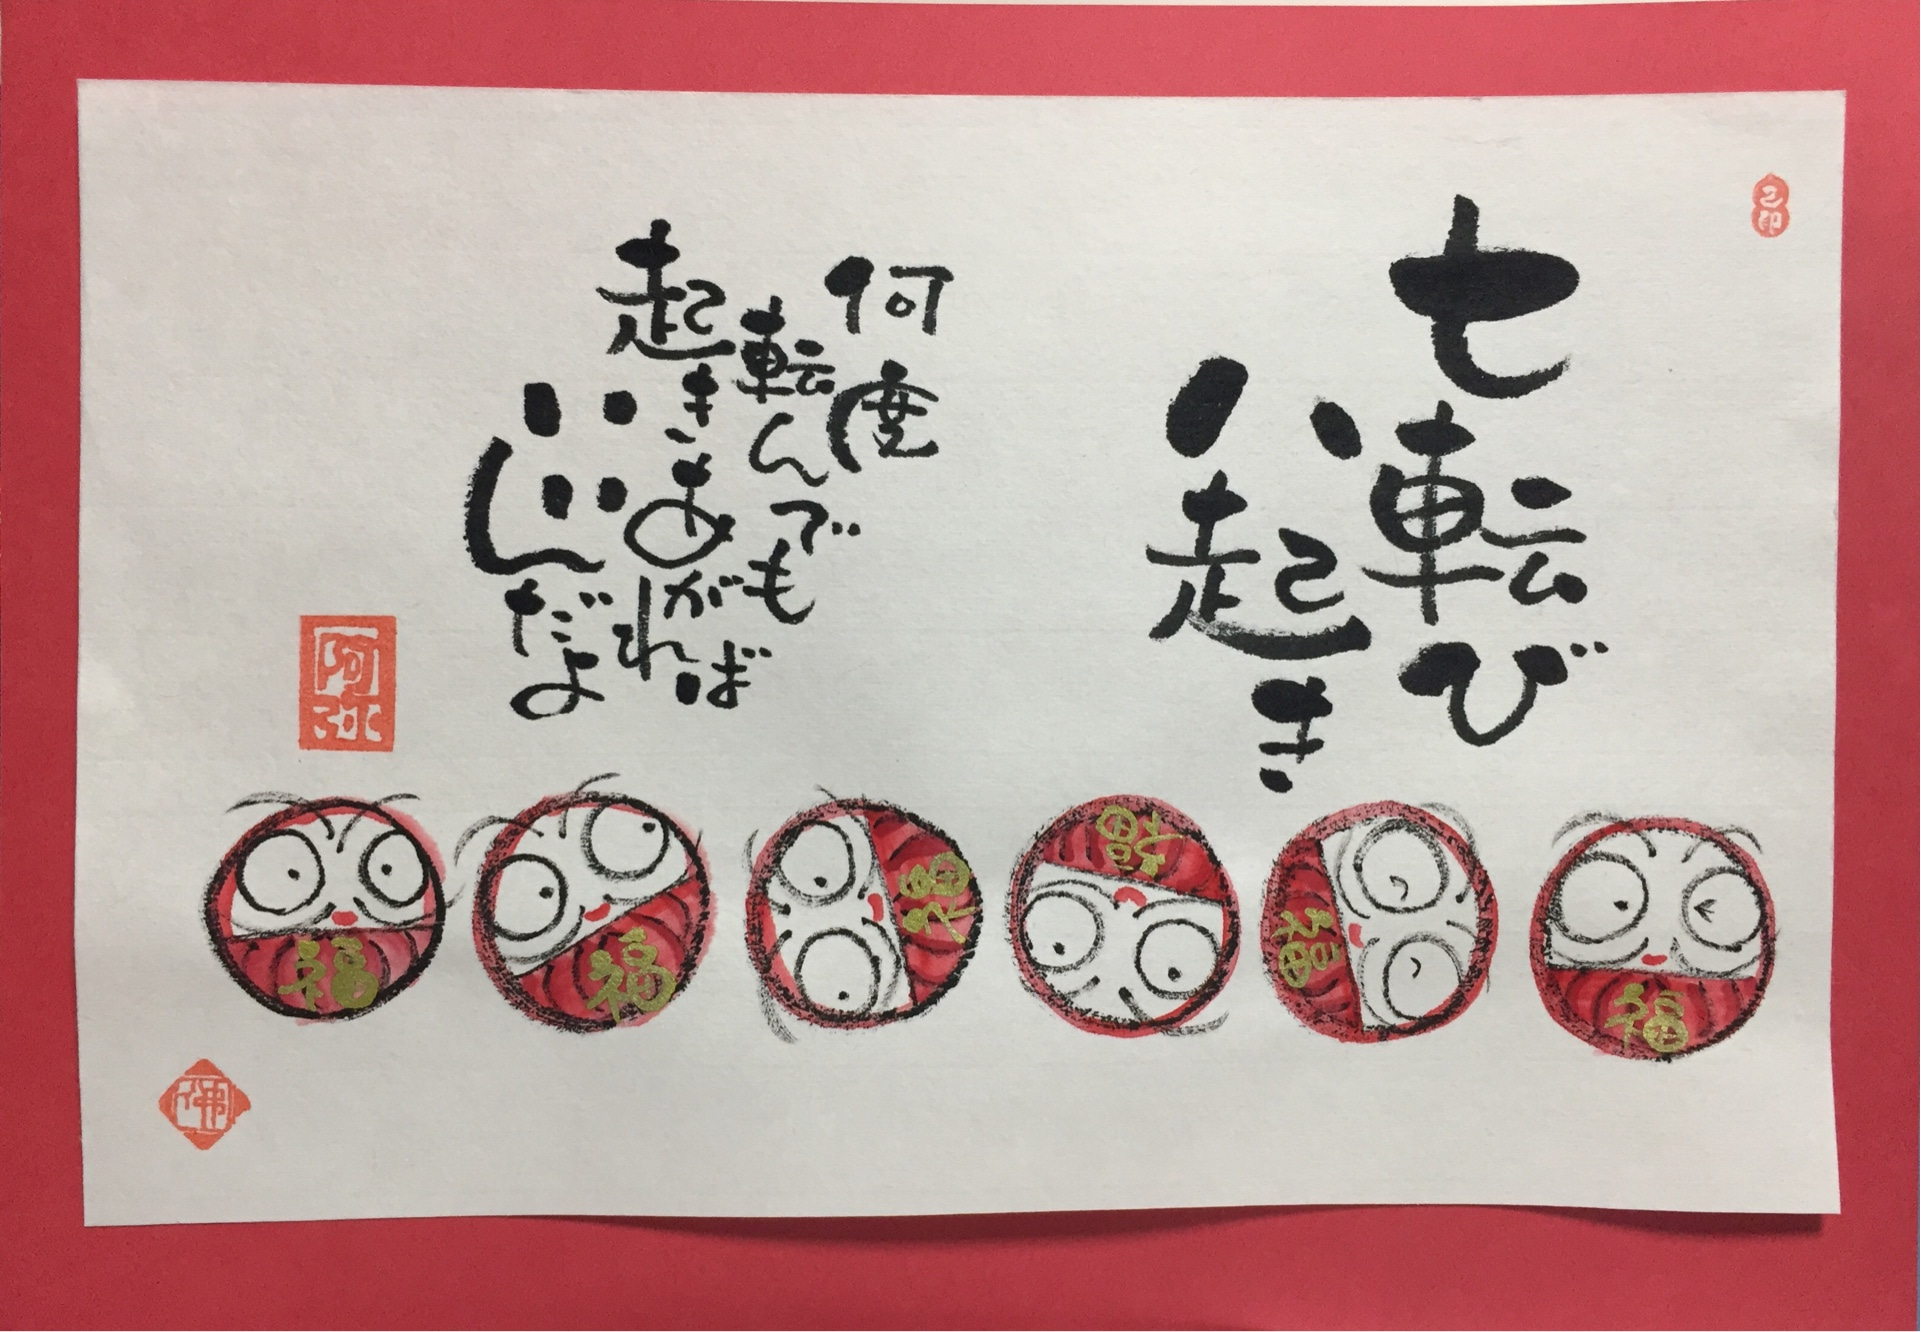 七転び
八起き
何度
転んでも
起きあがれば
いい
んだよ
阿弥
福
福
福
福
福
福